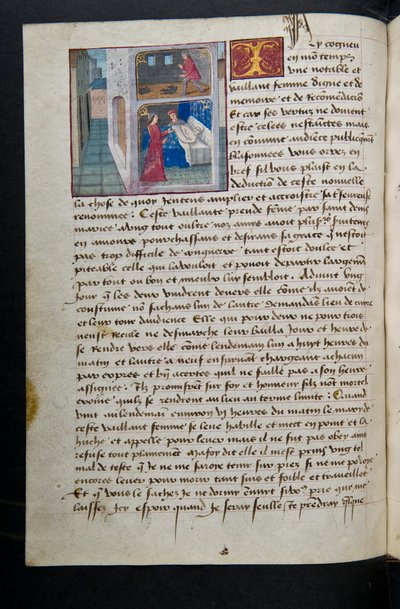 J'ay cogneu
en mon temps
une notable et
vaillant femme digne et de
memoire et de recommãdacio
Et car ses vertuz ne doivent
estre celees ne estainctes mais
en commune audience publiquemẽt
blasonnees vous orrez en
bref sil vous plaist en la
deduction de ceste nouvelle
la chose de quoy Jentens amplier et accroistre sa treseureuse
renommee : Ceste vaillante preude fẽme
mariee a ung tout oultre noz amis avoit plusrs
en amours pourchassans et desirans sa grace qui nestoit
pas trop difficile de conquerre tant estoit doulce et
piteable celle qui la vouloit et povoit departir largemẽt
par tout ou bon et mieulx luy sembloit . Advint ung
Jour que les deux vindrent devers elle cõme ilz avoiẽt de
coustume no sachans lun de lautre demandans lieu de
et leur tour daudience Elle qui pour deux ne pour trois
neust recule ne desmarche leur bailla Jour et heure de
se rendre vers elle cõme lendemain lun a huyt heures du
matin et lautre a neuf ensuivant chargeant a chacun
par expres et bien acertes quil ne faille pas a son heure
assignee . Ilz promisrent sur foy et honneur silz nõt mortel
exoine quilz se rendront au lieu au terme limite : Quand
vint au lendemain environ vj heures du matin le mary de
ceste vaillant femme se lieve habille et mect en point et la
huche et appelle pour lever mais il ne fut pas obey ains
refuse tout plainement Ma foy dit elle il mest prins ung tel
mal de teste que Je ne me saroye tenir sur piez si ne me pourroye
encores lever pour morir tant suis et foible et traveillee
Et que vous le sachez Je ne dormy ennuyt si vous prie que me
laissez Icy espoir quand Je seray seulle Je prendray quelque